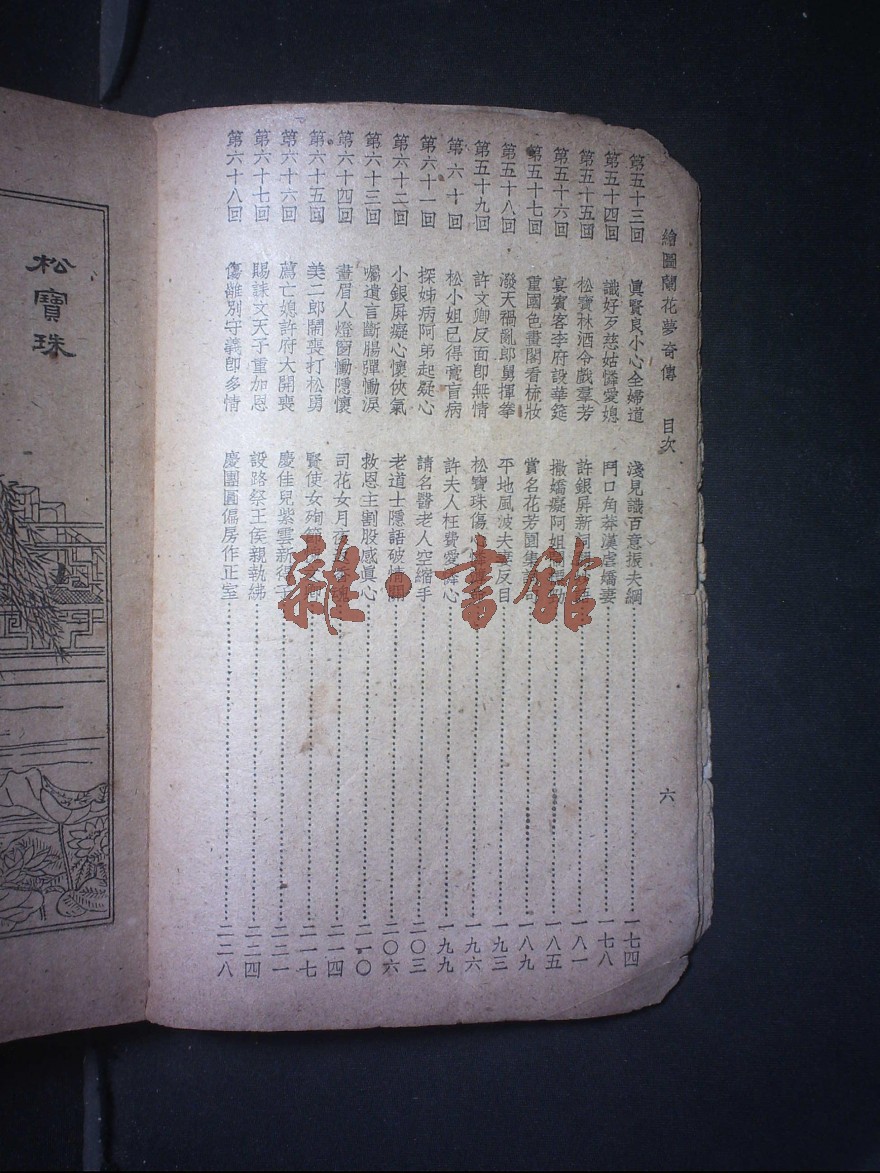 繪圖蘭花夢奇傳 目次 六
第五十三回 眞賢良小心全婦道 淺見識百意振夫綱 一七四
第五十四回 識好歹慈姑憐愛媳 鬥口角莽漢虐嬌妻 一七八
第五十五回 松寶林酒令戲羣芳 許銀屏新 一八一
第五十六回 宴賓客李府設華筵 撒嬌癡阿姐 一八五
第五十七回 重國色畫閣看梳妝 賞名花芳園集 一八九
第五十八回 潑天禍亂郎舅揮拳 平地風波夫妻反目 一九三
第五十九回 許文卿反面卽無情 松寶珠傷心 一九六
第六十回 松小姐已得膏盲病 許夫人枉費愛憐心 一九九
第六十一回 探姊病阿弟起疑心 請名醫老人空縮手 二〇三
第六十二回 小銀屏癡心懷俠氣 老道士隱語破情關 二〇六
第六十三回 囑遺言斷腸彈慟淚 救恩主割股感眞心 二一〇
第六十四回 畫眉人燈窗慟隱懷 司花女月夜 魂 二一四
第六十五回 美二郎鬧喪打松勇 賢使女殉節 二一七
第六十六回 薦亡媳許府大開喪 慶佳兒紫雲新得子 二二一
第六十七回 賜誄文天子重加恩 設路祭王侯親執紼 二二四
第六十八回 傷離別守義卽多情 慶團圓偏房作正室 二二八
松寶珠
雜·書館